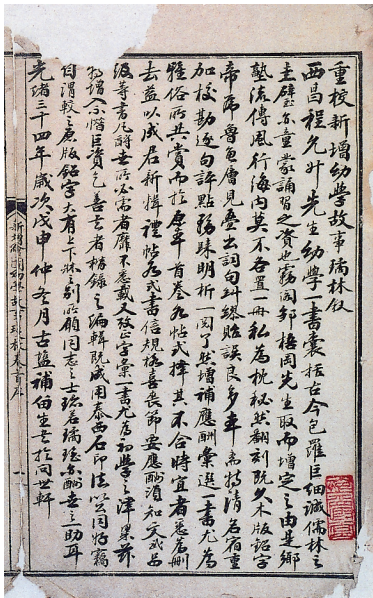 重校新增幼學故事瓊林叙
西昌程允升先生幼學一書囊括古今包羅巨細誠儒林之
圭璧亦童蒙誦習之資也霧閣鄒梧岡先生取而增定之由是鄉
塾流傳風行海內莫不各置一冊私為枕秘然翻刻既久木版銘字
帝虎魯魚層見叠出詞句糾繆貽誤良多本齋特請名宿重
加校勘逐句評點務求明析一閱了然增補應酬彙選一書尤為
雅俗所共賞而於原本首卷各帖式擇其不合時宜者悉為刪
去益以成居新悼禮帖各式書信規格喜喪節要應酬須知文武品
級等書凡酵世所必需者靡不悉載又攷正字彙一書尤為初學之津梁茲
特增入不惜巨資乞善書者精錄之編輯既成用泰西石印法以公同好竊
自謂較之原版銘字大有上下牀之別所願同志之士珍若瑤璧亦酬世之一助耳
光緒三十四年歲次戊申仲冬月古鹽補田生書於問世軒
新增繪圖幼學故事瓊林卷首序